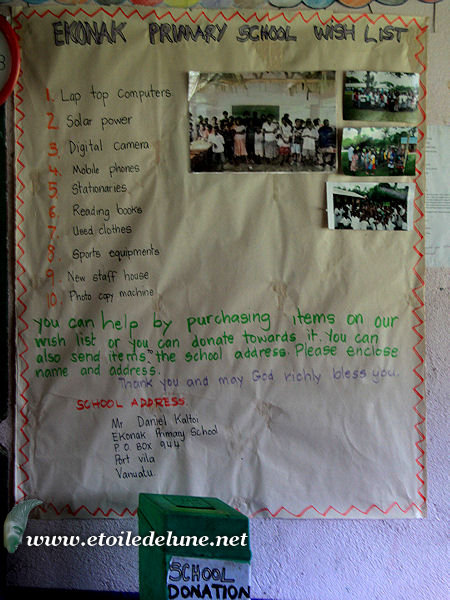 EKONAK PRIMARY SCHOOL WISH LIST
1. Lap top Computers
2. Solar power
3. Digital camera
4. Mobile phones
5. Stationaries
6. Reading books
7. Used clothes
8. Sports equipments
9. New staff house
10. Photo copy machine
you can help by purchasing items on our
wish list or you can donate towards it. You can
also send items the school address. Please enclose
name and address.
Thank you and may God richly bless you.
SCHOOL ADDRESS
Mr Daniel Kaltoi
Ekonak Primary School
P.O. BOX 944
Port Vila
Vanuatu.
www.etoiledelune.net
SCHOOL
DONATION